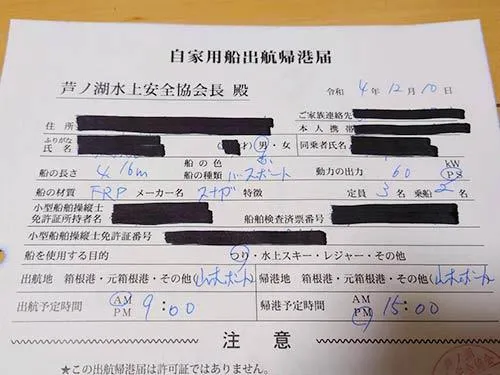 自家用船出航帰港届
芦ノ湖水上安全協会長 殿 令和 4年 12月 10日
住所 ご家族連絡先
本人携帯
ふりがな
氏名 男・女 同乗者氏名
船の色
船の長さ 4.16m 船の種類 動力の出力 60 kW PS
船の材質 FRP メーカー名 特徴 定員 3名 乗船 2名
小型船舶操縦士
免許証所持者名 船舶検査済票番号
小型船舶操縦士免許証番号
船を使用する目的 つり・水上スキー・レジャー・その他
出航地 箱根港・元箱根港・その他(山木ボート) 帰港地 箱根港・元箱根港・その他(山木ボート)
出航予定時間 AM PM 9:00 帰港予定時間 AM PM 15:00
注意
★この出航帰港届は許可証ではありません。